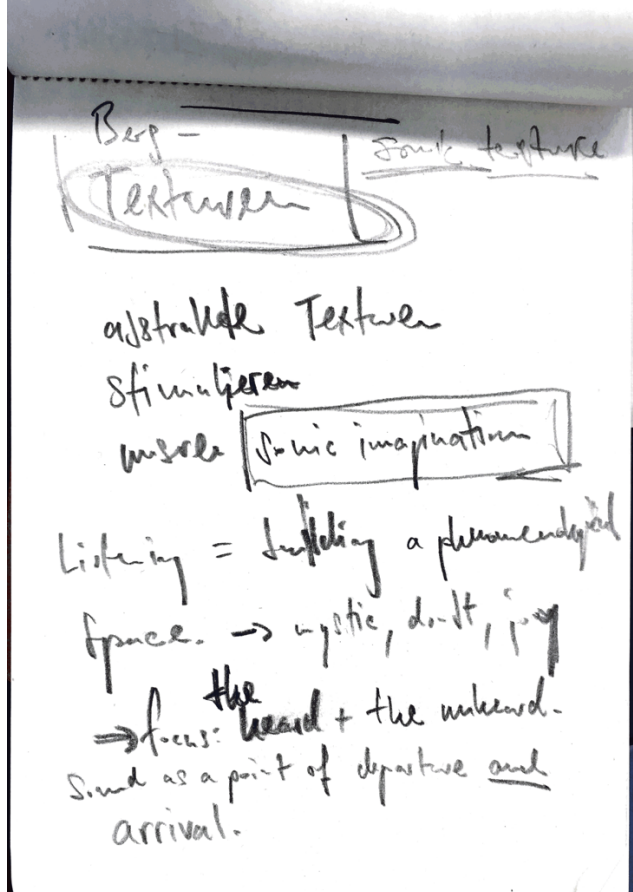 Berg-
Texturen
sonic texture
abstrakte Texturen
stimulieren
unsere sonic imagination
Listening = building a phenomenological
space. → mystic, doubt, joy
⇒ focus: the heard + the unheard.
Sound as a point of departure and
arrival.